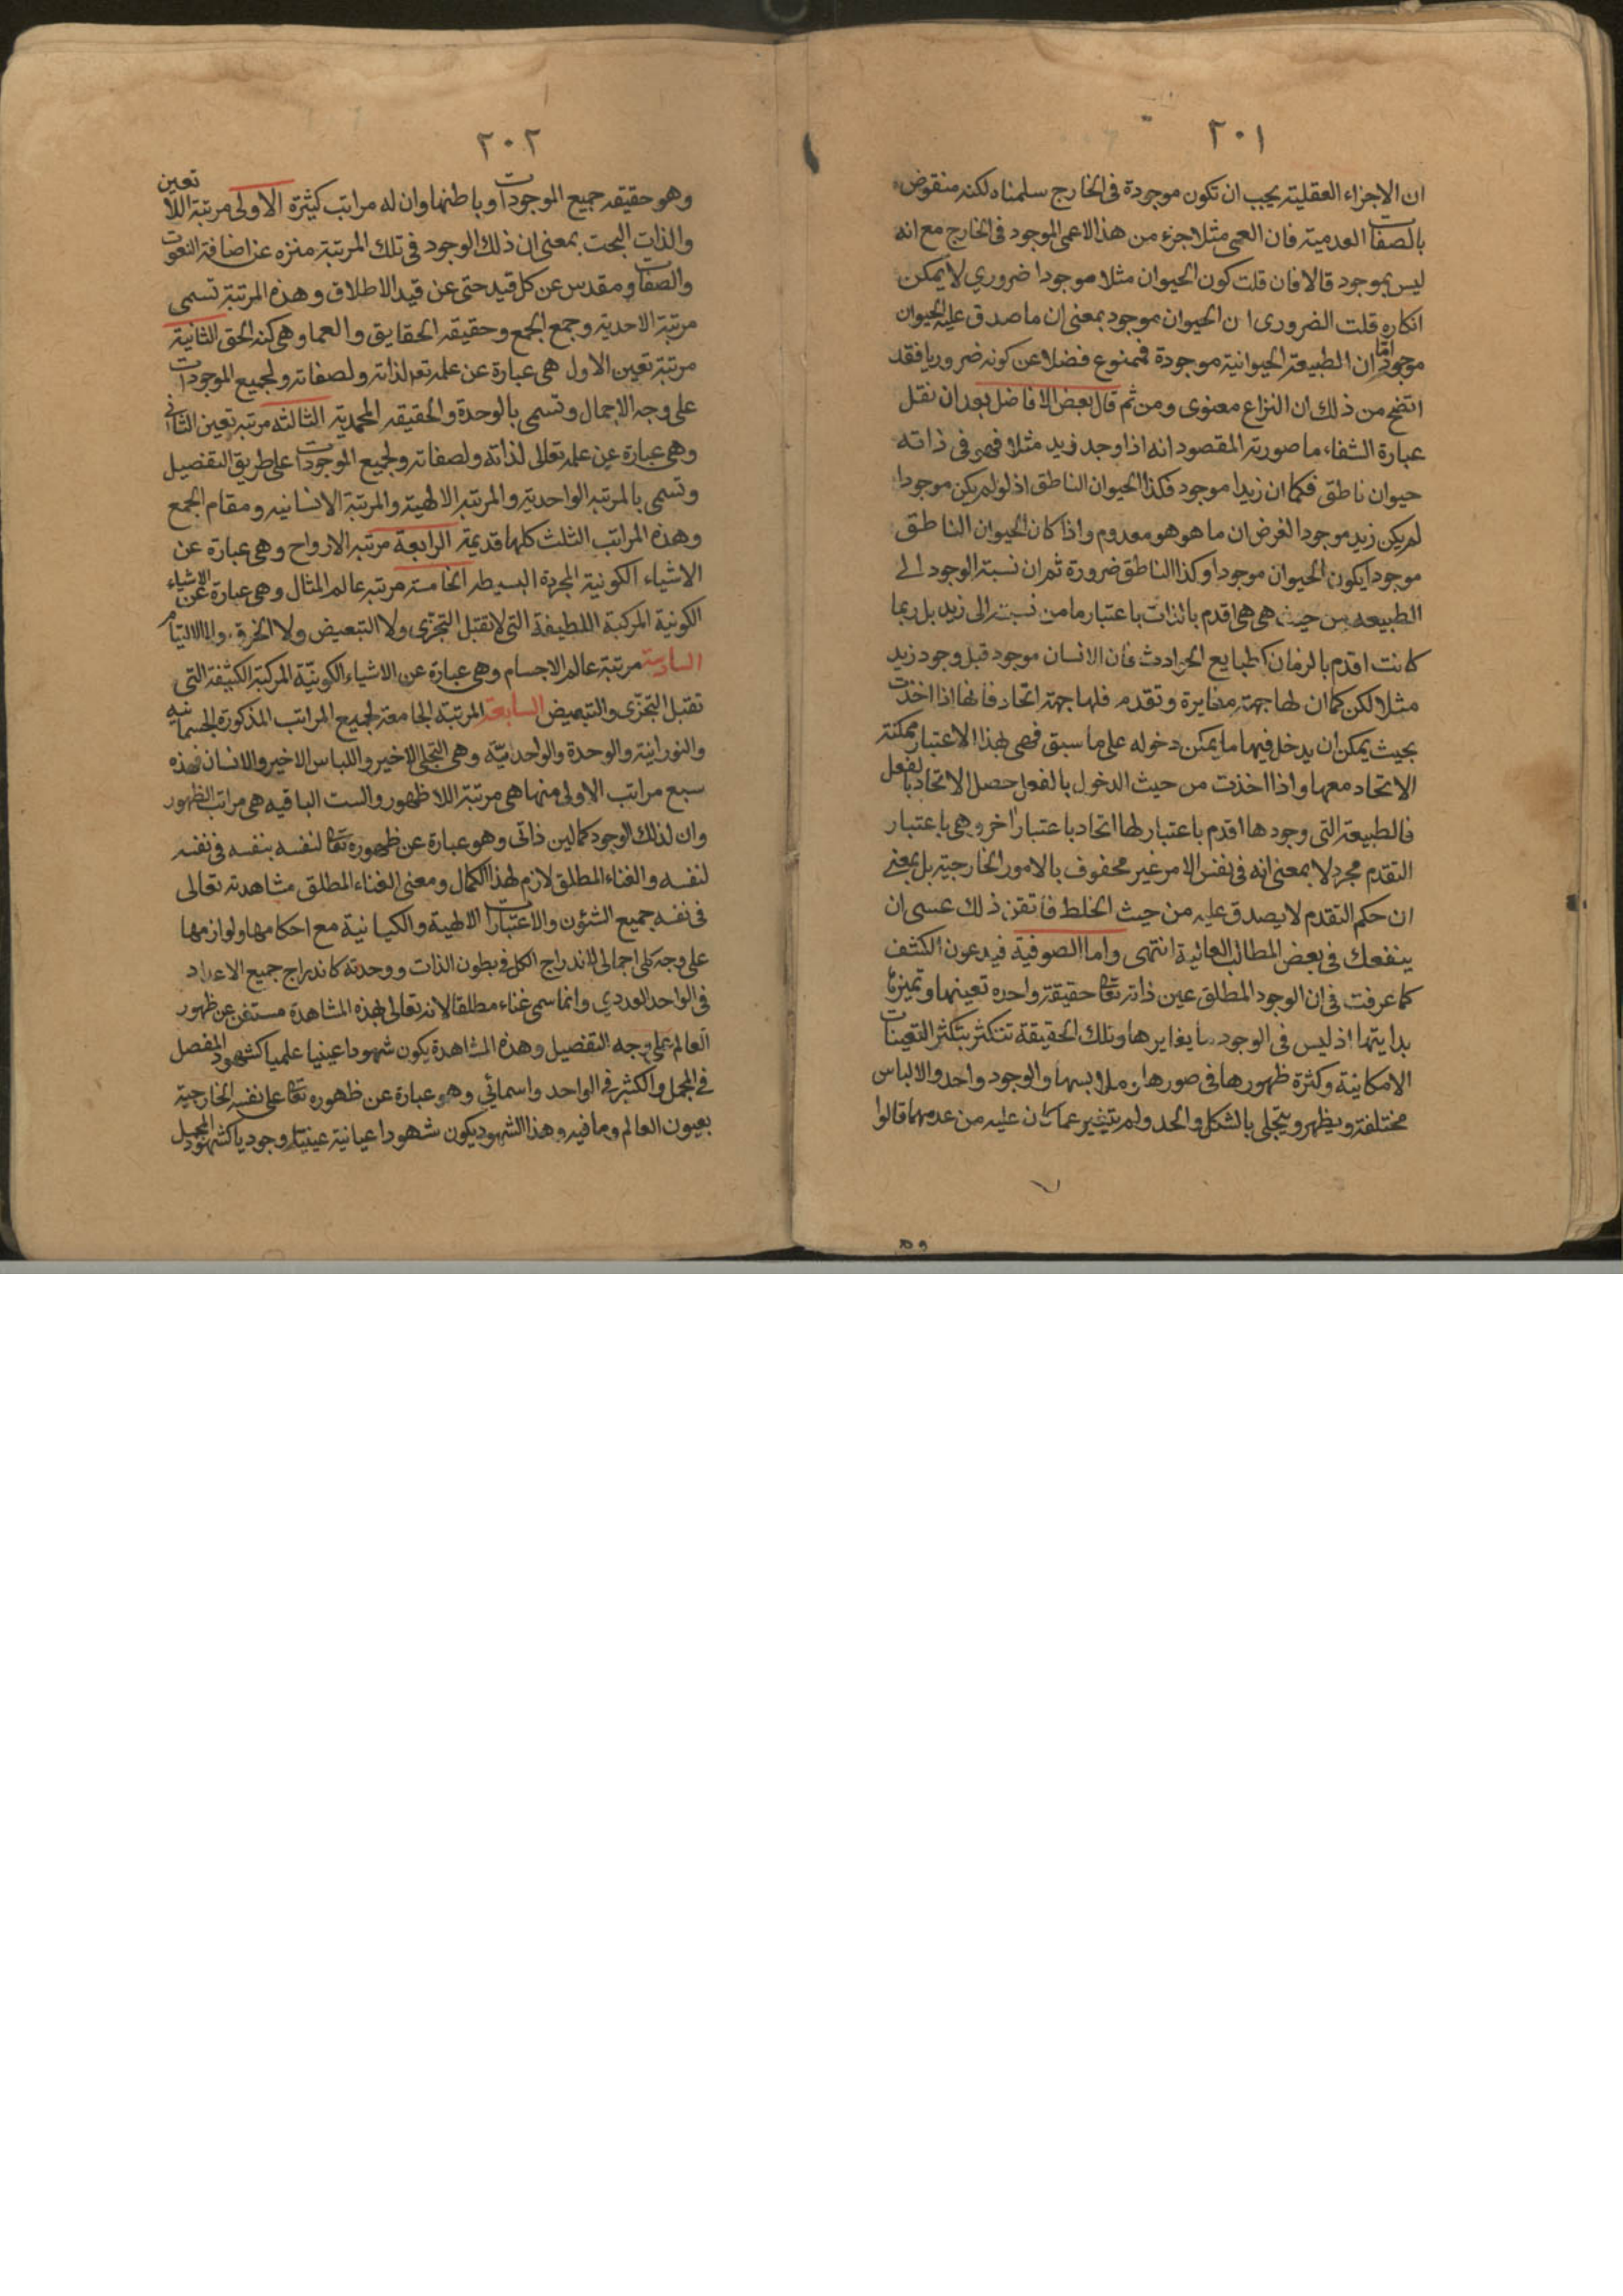 ٢٠١
ان الاجزاء العقلية يجب ان تكون موجودة فى الخارج سلمناه لكنه منقوض
بالصفات العدمية فان العمى مثلا جزء من هذا الاعمى الموجود فى الخارج مع انه
ليس بموجود قالا فان قلت كون الحيوان مثلا موجودا ضروري لا يمكن
انكاره قلت الضرورى ان الحيوان موجود بمعنى ان ما صدق عليه الحيوان
موجود اما ان الطبيعة الحيوانية موجودة فممنوع فضلا عن كونه ضروريا فقد
اتضح من ذلك ان النزاع معنوى ومن ثم قال بعض الافاضل بعد ان نقل
عبارة الشفاء ما صورته المقصود انه اذا وجد زيد مثلا فهى فى ذاته
حيوان ناطق فكما ان زيدا موجود فكذا الحيوان الناطق اذ لو لم يكن موجودا
لم يكن زيد موجودا لغرض ان ما هو هو معدوم واذا كان الحيوان الناطق
موجودا يكون الحيوان موجودا وكذا الناطق ضرورة ثم ان نسبة الوجود الى
الطبيعه من حيث هى هى اقدم بالذات باعتبار ما من نسبته الى زيد بل ربما
كانت اقدم بالزمان كطبايع الحوادث فان الانسان موجود قبل وجود زيد
مثلا لكن كما ان لها جهة مغايرة وتقدم فلها جهة اتحاد فانها اذا اخذت
بحيث يمكن ان يدخل فيها ما يمكن دخوله على ما سبق فهى بهذا الاعتبار ممكنة
الاتحاد معها واذا اخذت من حيث الدخول بالفعل حصل الاتحاد بالفعل
فالطبيعة التى وجودها اقدم باعتبار لها اتحاد باعتبار اخر وهى باعتبار
التقدم مجرد لا بمعنى انه فى نفس الامر غير محفوف بالامور الخارجية بل بمعنى
ان حكم التقدم لا يصدق عليه من حيث الخلط فاتقن ذلك عسى ان
ينفعك فى بعض المطالب العالية انتهى واما الصوفية فيدعون الكشف
كما عرفت فى ان الوجود المطلق عين ذاته تعالى حقيقة واحده تعينها وتميزها
بذايتها اذ ليس فى الوجود ما يغايرها وتلك الحقيقة تتكثر بتكثر التعينات
الامكانية وكثرة ظهورها فى صورها وملابسها والوجود واحد والالباس
مختلفة ويظهر ويتجلى بالشكل والحد ولم يتغير عما كان عليه من عدمهما قالوا
٢٠٢
وهو حقيقه جميع الموجودات وباطنها وان له مراتب كثيرة الاولى مرتبة اللا تعين
والذات البحت بمعنى ان ذلك الوجود فى تلك المرتبة منزه عن اضافة النعوت
والصفات ومقدس عن كل قيد حتى عن قيد الاطلاق وهذه المرتبة تسمى
مرتبة الاحدية وجمع الجمع وحقيقه الحقايق والعما وهى كنه الحق الثانية
مرتبة تعين الاول هى عبارة عن علمه تعه لذاته ولصفاته ولجميع الموجودات
على وجه الاجمال وتسمى بالوحدة والحقيقه المحمدية الثالثه مرتبة تعين الثانى
وهى عبارة عن علمه تعالى لذاته ولصفاته ولجميع الموجودات على طريق التفصيل
وتسمى بالمرتبه الواحدية والمرتبه الالهية والمرتبة الانسانيه ومقام الجمع
وهذه المراتب الثلث كلها قديمة الرابعة مرتبه الارواح وهى عبارة عن
الاشياء الكونية المجردة البسيطه الخامسة مرتبه عالم المثال وهى عبارة عن الاشياء
الكونية المركبة اللطيفة التى لا تقبل التجزى ولا التبعيض ولا الخرق والالتيام
السادسة مرتبة عالم الاجسام وهى عبارة عن الاشياء الكونيّة المركبة الكثيفة التى
تقبل التجزى والتبعيض السابعة المرتبة الجامعة لجميع المراتب المذكورة الجسمانيه
والنورانية والوحدة والواحديّة وهى التجلى الاخير واللباس الاخير والانسان فهذه
سبع مراتب الاولى منها هى مرتبة اللا ظهور والست الباقيه هى مراتب الظهور
وان لذلك الوجود كمالين ذاتى وهو عبارة عن ظهوره تعالى لنفسه بنفسه فى نفسه
لنفسه والغناء المطلق لازم لهذا الكمال ومعنى الغناء المطلق مشاهدته تعالى
فى نفسه جميع الشئون والاعتبارات الالهية والكيانية مع احكامها ولوازمها
على وجه كلى اجمالى لاندراج الكل فى بطون الذات ووحدته كاندراج جميع الاعداد
فى الواحد العددي وانما سمى غناء مطلقا لانه تعالى بهذه المشاهدة مستغن عن ظهور
العالم على وجه التفصيل وهذه المشاهدة يكون شهودا عينيا علميا كشهود المفصل
فى المجمل والكثير فى الواحد واسمائي وهو عبارة عن ظهوره تعالى على نفسه الخارجية
بعيون العالم وما فيه وهذا الشهود يكون شهودا عيانية عينيا وجوديا كشهود المجمل